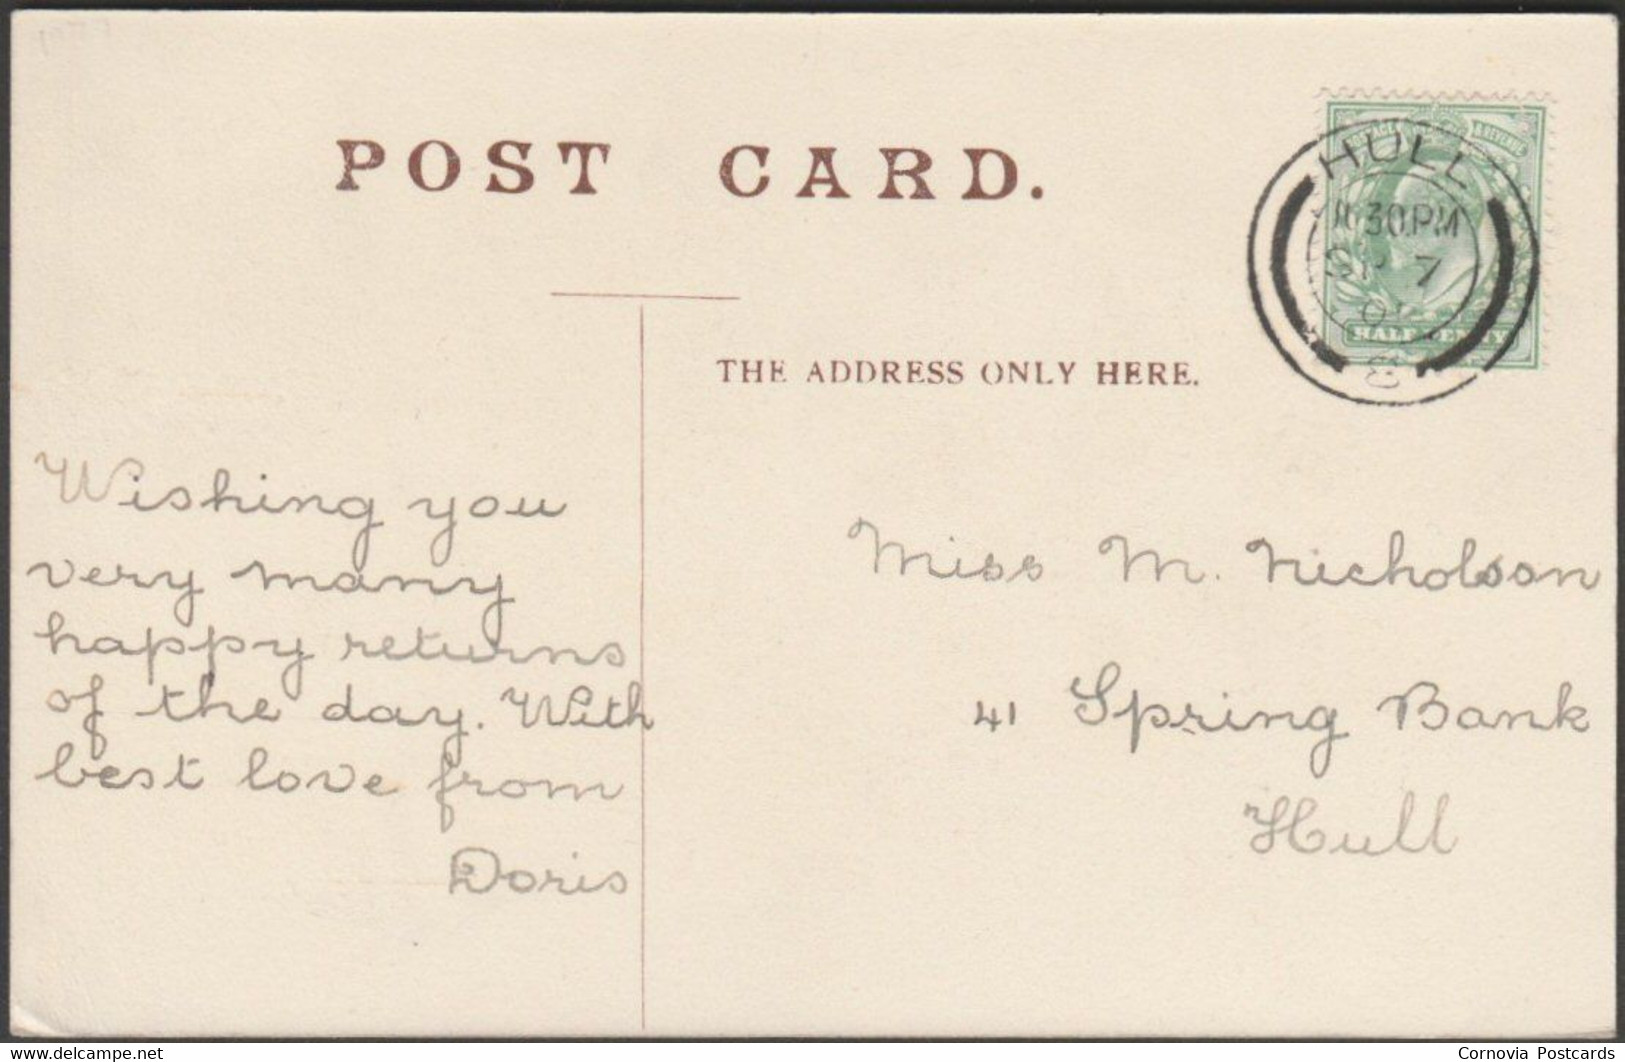 POST CARD.
HULL
30 PM
SP 7
HALF PENNY
THE ADDRESS ONLY HERE.
Wishing you
very many
happy returns
of the day. With
best love from
Doris
Miss M. Nicholson
41 Spring Bank
Hull
www.delcampe.net
Cornovia Postcards